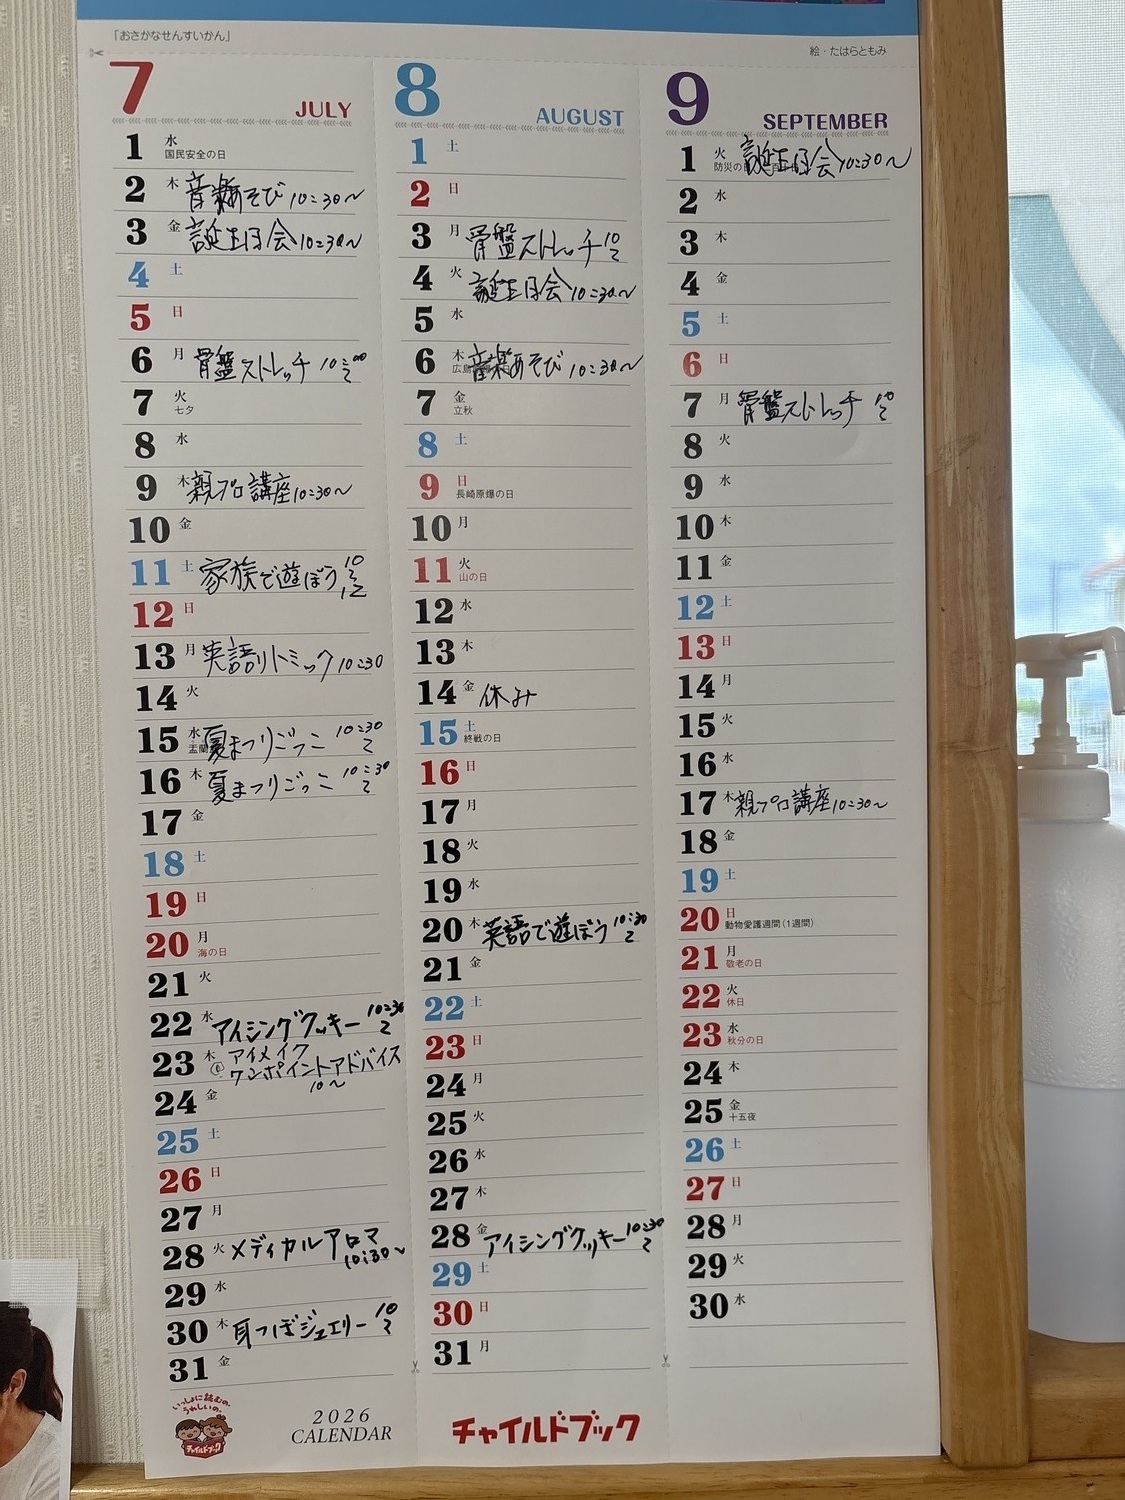 「おさかなせんすいかん」
絵・たはらともみ
7 JULY
1 水 国民安全の日
2 木 音楽あそび 10:30〜
3 金 誕生日会 10:30〜
4 土
5 日
6 月 骨盤ストレッチ 10:00〜
7 火 七夕
8 水
9 木 親プロ講座 10:30〜
10 金
11 土 家族で遊ぼう 10〜12
12 日
13 月 英語リトミック 10:30
14 火
15 水 夏まつりごっこ 10:30〜
16 木 夏まつりごっこ 10:30〜
17 金
18 土
19 日
20 月 海の日
21 火
22 水 アイシングクッキー 10:30〜
23 木 アイメイク
ワンポイントアドバイス
10〜
24 金
25 土
26 日
27 月
28 火 メディカルアロマ
10:30〜
29 水
30 木 耳つぼジュエリー 10〜
31 金
8 AUGUST
1 土
2 日
3 月 骨盤ストレッチ 10〜
4 火 誕生日会 10:30〜
5 水
6 木 音楽あそび 10:30〜
7 金 立秋
8 土
9 日 長崎原爆の日
10 月
11 火 山の日
12 水
13 木
14 金 休み
15 土 終戦の日
16 日
17 月
18 火
19 水
20 木 英語で遊ぼう 10:30〜
21 金
22 土
23 日
24 月
25 火
26 水
27 木
28 金 アイシングクッキー 10:30〜
29 土
30 日
31 月
9 SEPTEMBER
1 火 誕生日会 10:30〜
2 水
3 木
4 金
5 土
6 日
7 月 骨盤ストレッチ 10〜
8 火
9 水
10 木
11 金
12 土
13 日
14 月
15 火
16 水
17 木 親プロ講座 10:30〜
18 金
19 土
20 日 動物愛護週間(1週間)
21 月 敬老の日
22 火 休日
23 水 秋分の日
24 木
25 金 十五夜
26 土
27 日
28 月
29 火
30 水
いっしょに読むの、
うれしいの。
チャイルドブック
2026
CALENDAR
チャイルドブック